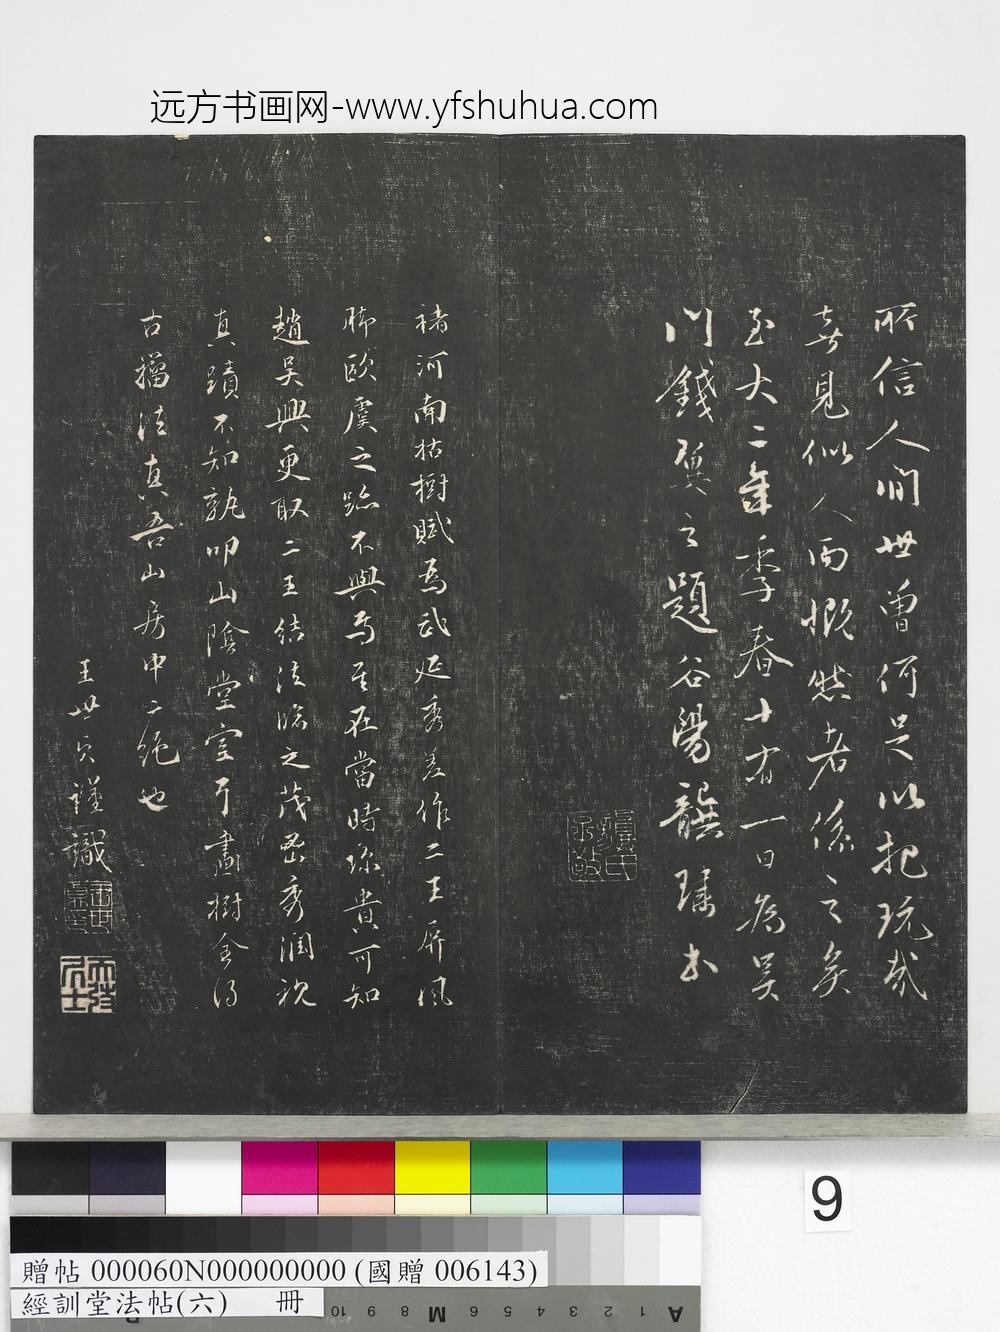 远方书画网-www.yfshuhua.com
所信人间世曾何足以把玩哉
喜見似人而慨然者係之矣
至大二年季春十有一日為吳
門錢翼之題谷陽龔璛書
褚河南枯樹賦為武延秀差作二王屏風
脚歐虞之跡不與焉其在當時珍貴可知
趙吳興更取二王結法臨之茂密秀潤視
真蹟不知孰叩山陰堂室耳畫樹全得
古搨法真吾山房中二絕也
王世貞謹識
9
贈帖 000060N000000000 (國贈 006143)
經訓堂法帖(六) 冊
R 10 9 8 M 6 5 4 3 2 1 A